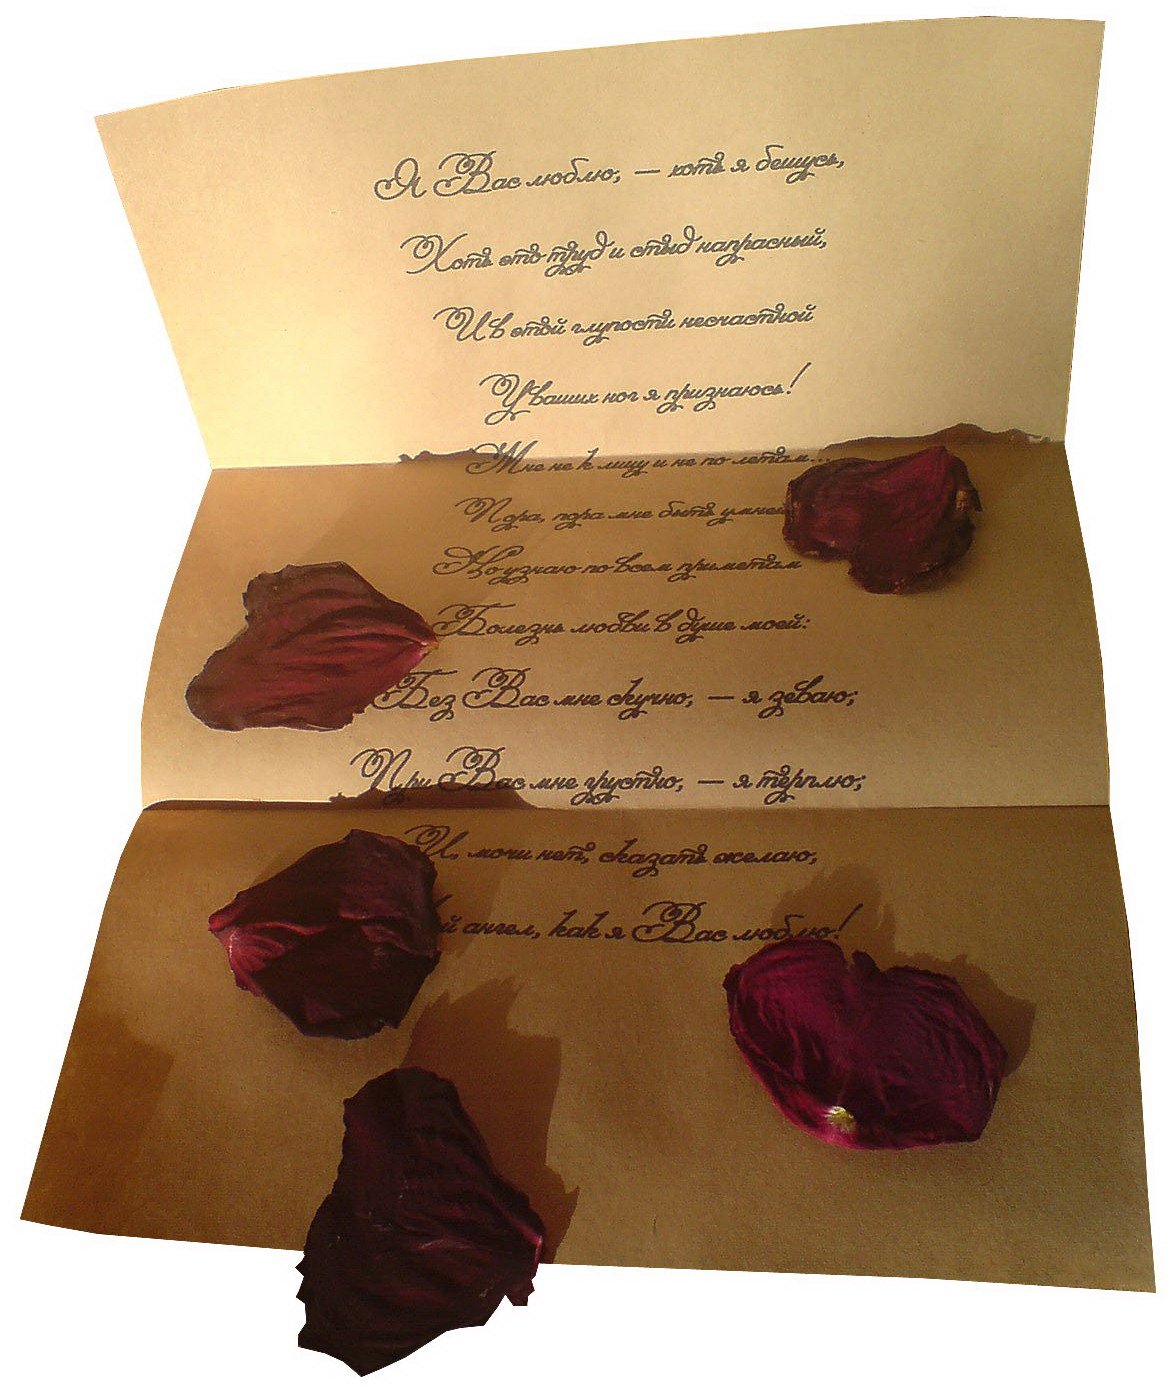 Я Вас люблю, — хоть я бешусь,
Хоть это труд и стыд напрасный,
И в этой глупости несчастной
У ваших ног я признаюсь!
Мне не к лицу и не по летам...
Пора, пора мне быть умней
Но узнаю по всем приметам
Болезнь любви в душе моей:
Без Вас мне скучно, — я зеваю;
При Вас мне грустно, — я терплю;
И, мочи нет, сказать желаю,
ангел, как я Вас люблю!